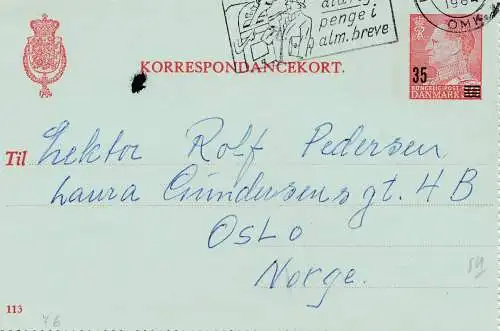 aldrig
penge i
alm. breve
196
OMK
KORRESPONDANCEKORT.
35
KONGELIG POST
DANMARK
Til Lektor Rolf Pedersen
Laura Gundersens gt. 4 B
Oslo
Norge.
113